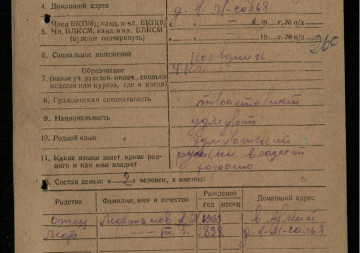 4. Домашний адрес
д. 1-Я-солья
Член ВКП(б); канд. в чл. ВКП(б)
5. Чл. ВЛКСМ; канд. в чл. ВЛКСМ
(нужное зачеркнуть)
19 г., № п/д
19 г., № п/д
260
6. Социальное положение
Колхозник
Образование
7. (какое уч. заведен. оконч., сколько
классов или курса, где и когда)
8. Гражданская специальность
9. Национальность
удмурт
10. Родной язык
удмуртский
11. Какие языки знает кроме род-
ного и как ими владеет
русским владеет
хорошо
Состав семьи: « 2 » человек, а именно:
Родство Фамилия, имя и отчество Рождения Домашний адрес
год месяц
отец 1900 в армии
мать 1898 д. 1-Я-солья